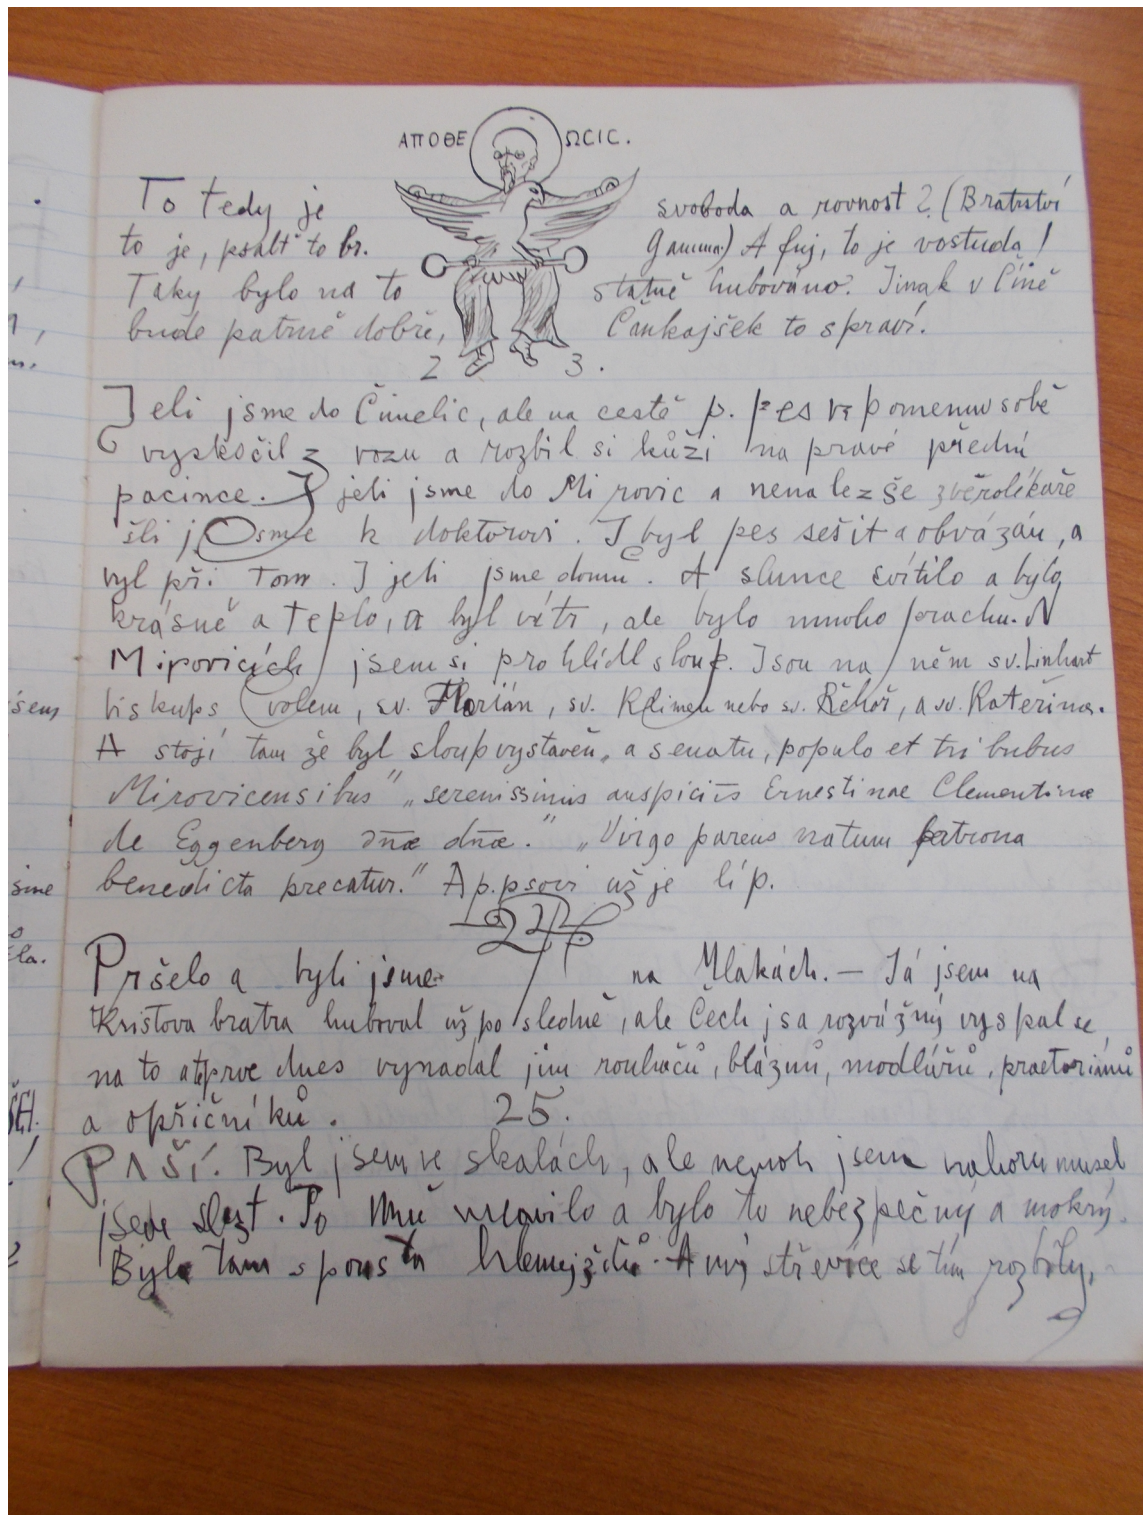 ΑΠΟΘΕ ΩCIC.
To tedy je svoboda a rovnost? (Bratrství
to je, psalť to br. Gamma.) A fuj, to je vostuda!
Taky bylo na to statně hubováno. Jinak v Číně
bude patrně dobře, Čankajšek to spraví.
23.
Jeli jsme do Čimelic, ale na cestě p. pes vzpomenuv sobě
vyskočil z vozu a rozbil si kůži na pravé přední
pacince. I jeli jsme do Mirovic a nenalezše zvěrolékaře
šli jsme k doktorovi. I byl pes sešit a obvázán, a
vyl při tom. I jeli jsme domů. A slunce svítilo a bylo
krásně a teplo, a byl vítr, ale bylo mnoho prachu. V
Mirovicích jsem si prohlídl sloup. Jsou na něm sv. Linhart
biskup s volem, sv. Florián, sv. Kliment nebo sv. Řehoř, a sv. Kateřina.
A stojí tam že byl sloup vystavěn „a senatu, populo et tribubus
Mirovicensibus" „serenissimis auspiciis Ernestinae Clementinae
de Eggenberg dnae dnae." „Virgo parens natum patrona
benedicta precatur." A p. psovi už je líp.
24
Pršelo a byli jsme na Mlakách. — Já jsem na
Kristova bratra huboval už posledně, ale Čech jsa rozvážný vyspal se
na to a teprve dnes vynadal jim rouhačů, bláznů, modlářů, praetoriánů
a opričníků. 25.
Prší. Byl jsem ve skalách, ale nemoh jsem nahoru musel
jsem slezt. To mě mrzilo a bylo to nebezpečný a mokrý.
Bylo tam spousta hlemejžďů. A mý střevíce se tím rozbily,